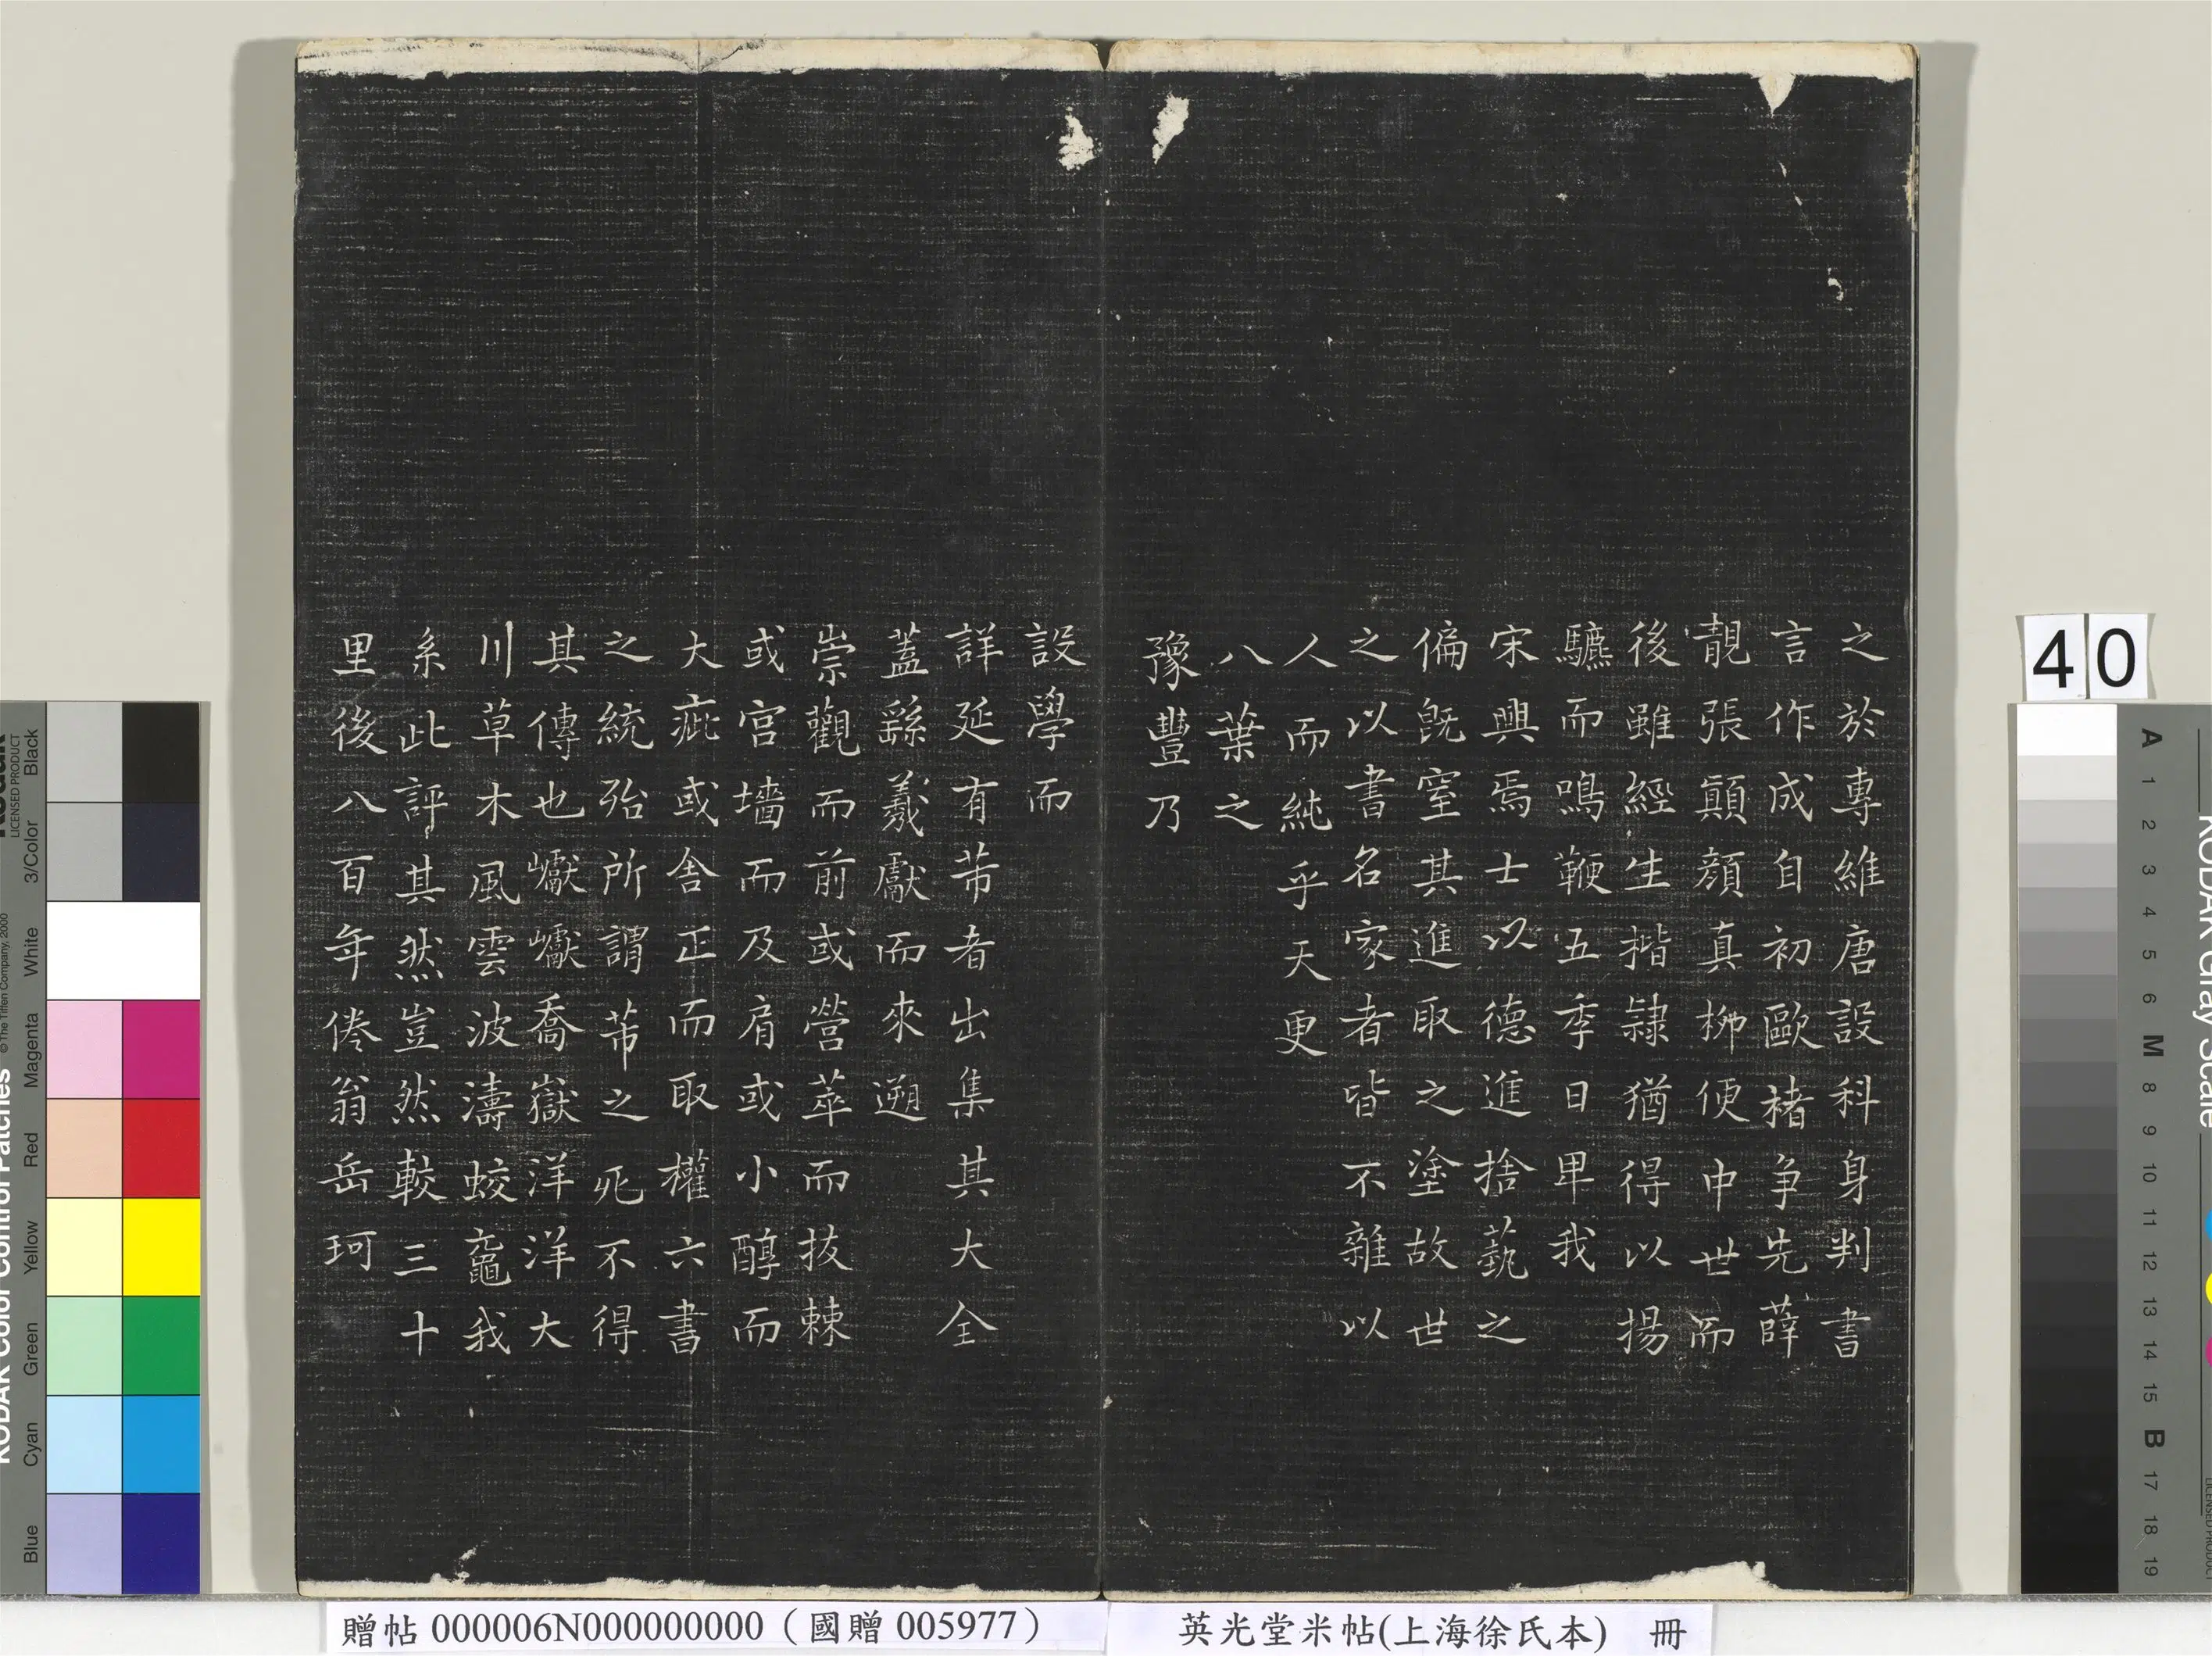 之於專維唐設科身判書
言作成自初歐褚争先薛
靚張顛顏真柳便中世而
後雖經生揩隷猶得以揚
驫而鳴鞭五季日卑我
宋興焉士以德進捨藝之
偏旣窒其進取之塗故世
之以書名家者皆不雜以
人而純乎天更
八葉之
豫豐乃
設學而
詳延有芾者出集其大全
蓋繇羲獻而來遡
崇觀而前或營萃而拔棘
或宫墻而及肩或小醇而
大疵或舍正而取權六書
之統殆所謂芾之死不得
其傳也巘巘喬嶽洋洋大
川草木風雲波濤蛟鼉我
系此評其然豈然較三十
里後八百年倦翁岳珂
40
贈帖 000006N000000000（國贈 005977）
英光堂米帖(上海徐氏本) 冊
KODAK Color Control Patches
LICENSED PRODUCT
© The Tiffen Company, 2000
Black
3/Color
White
Magenta
Red
Yellow
Green
Cyan
Blue
KODAK Gray Scale
A 1 2 3 4 5 6 M 8 9 10 11 12 13 14 15 B 17 18 19